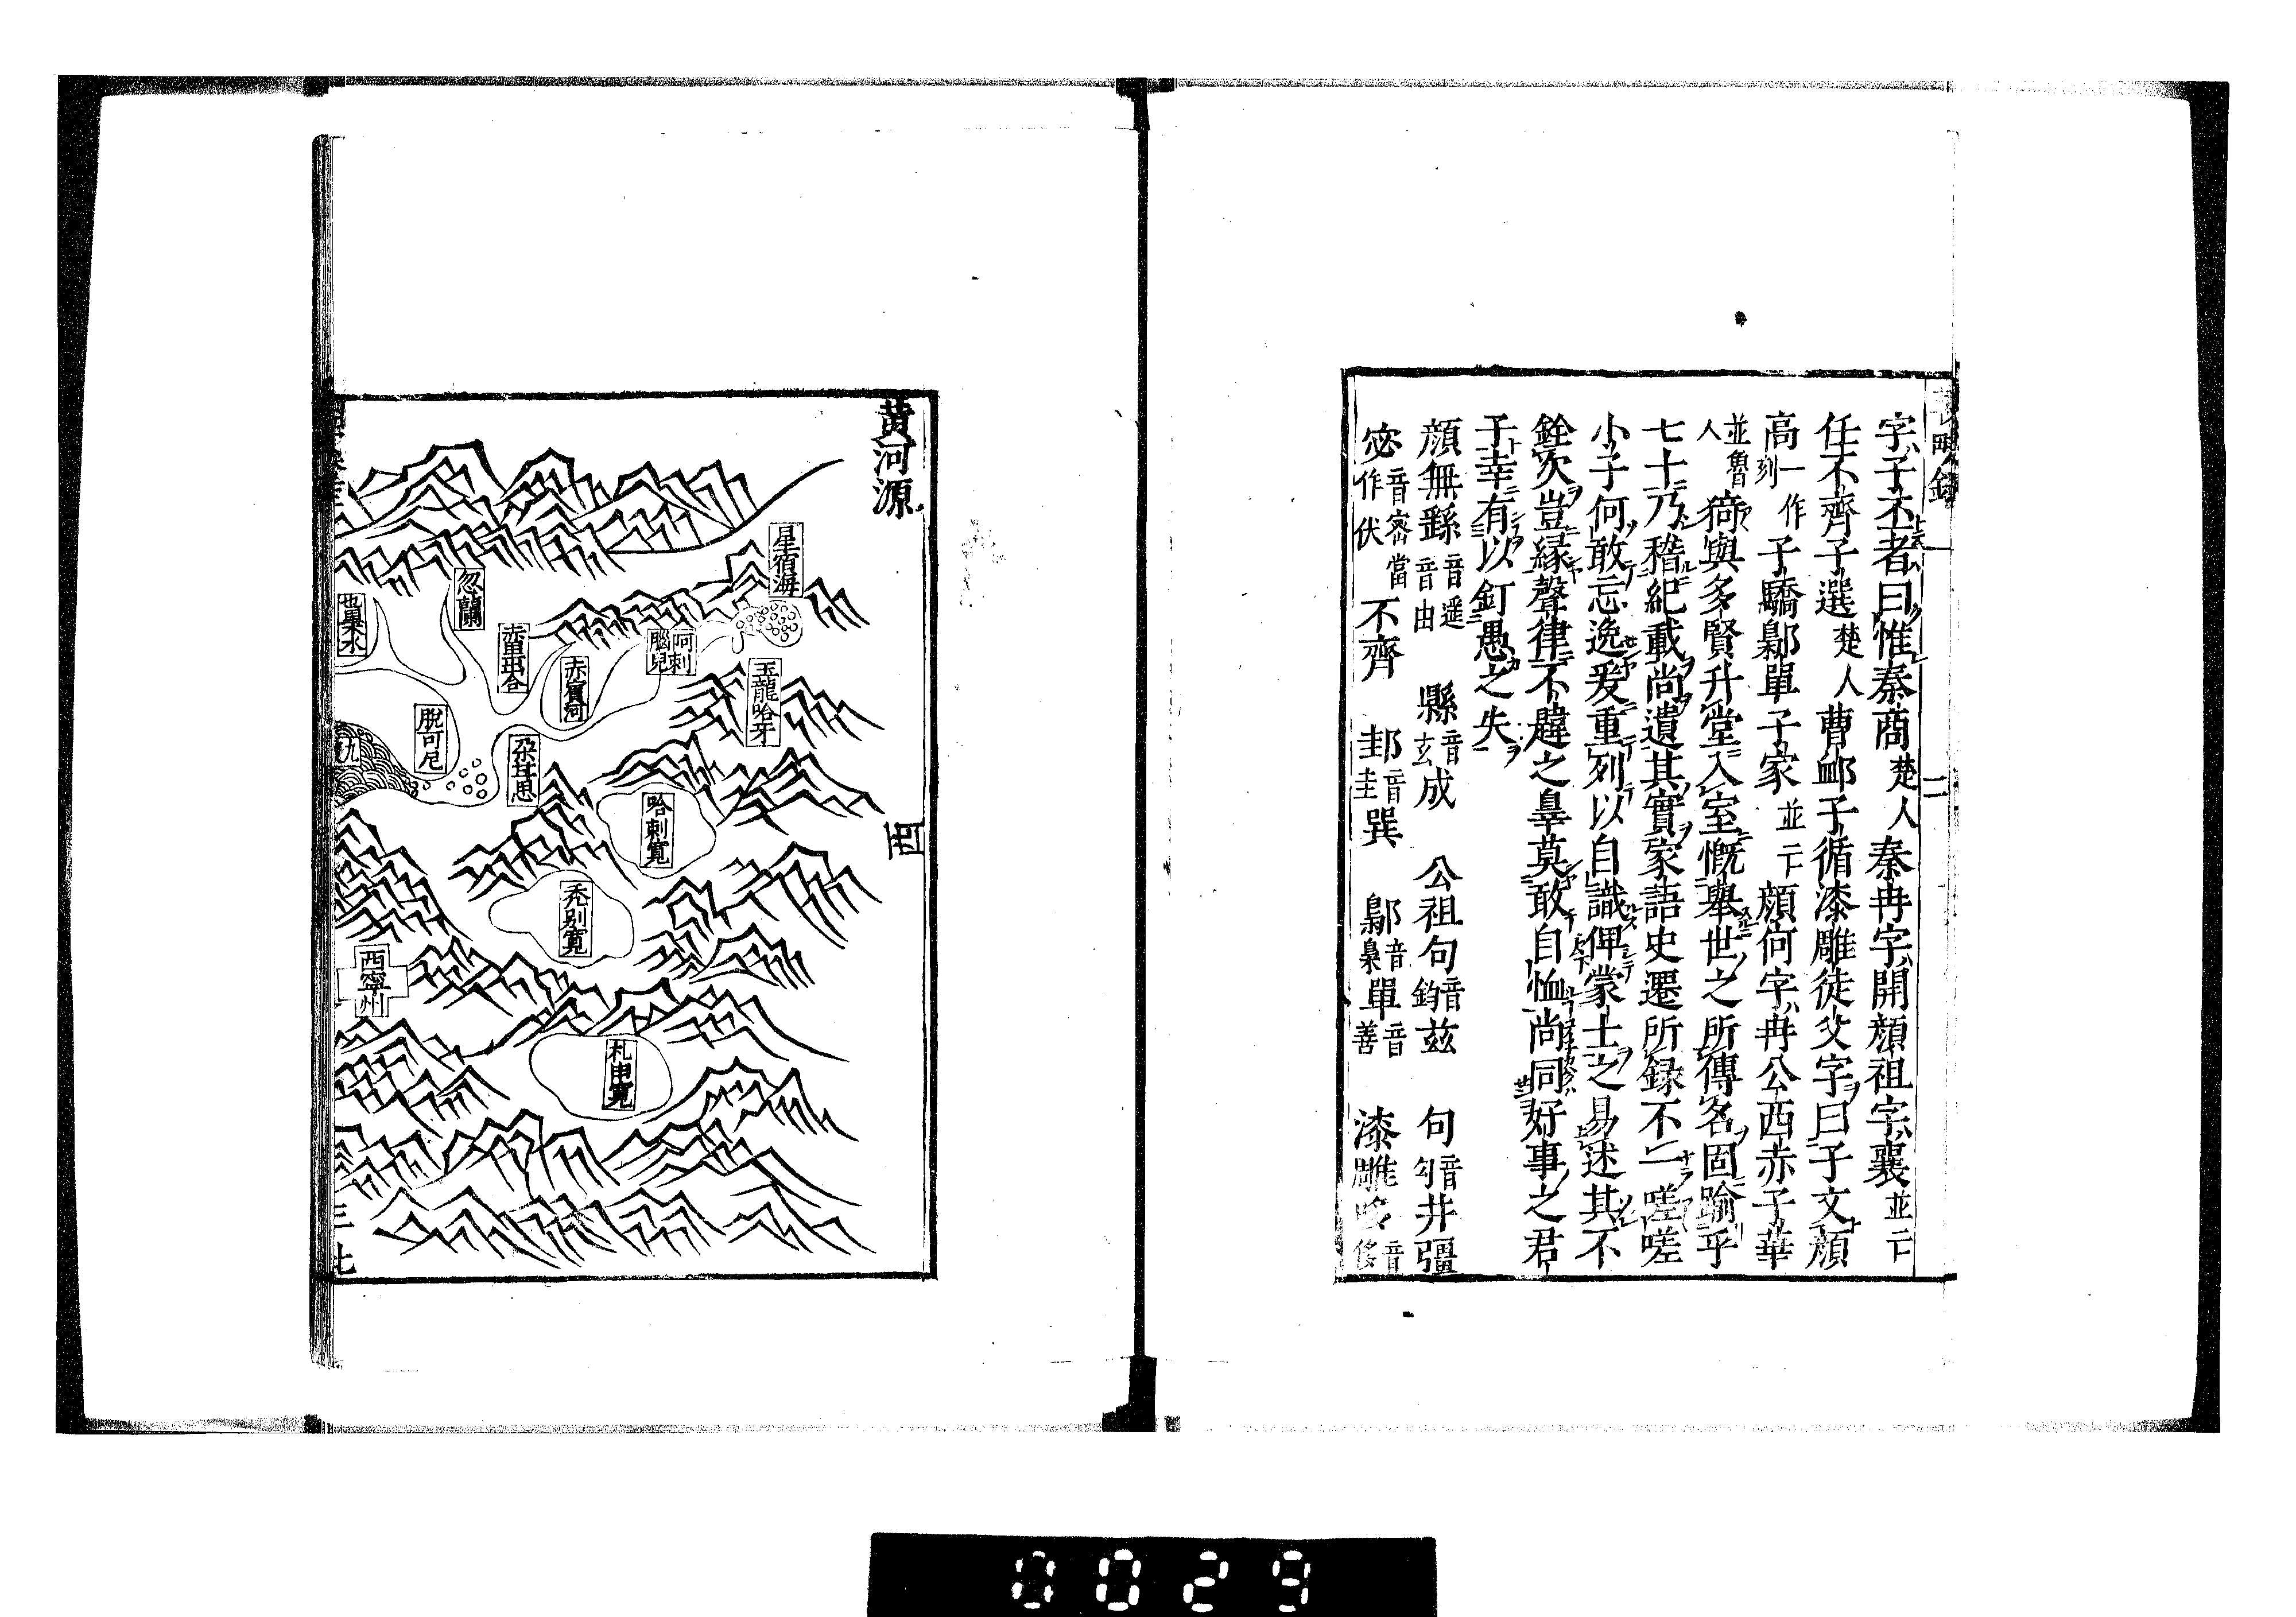 字子丕者曰惟秦商楚人秦冉字開顔祖字襄並二
任不齊子選楚人曹卹子循漆雕徒父字曰子文顔
高一作刻子驕鄡單子家並二顔何字冉公西赤子華
並魯人猗與多賢升堂入室慨舉世之所傳名固踰乎
七十乃稽紀載尚遺其實家語史遷所録不一嗟嗟
小子何敢忘逸爰重列以自識俾蒙士之易述其不
銓次豈緣聲律不韙之辠莫敢自恤尚同好事之君
子幸有以釘愚之失
顔無繇音遥音由 縣音玄成 公祖句音鈞兹 句音勾井彊
宓音密當作伏不齊 邽音圭巽 鄡音梟單音善 漆雕哆音侈
二
黄河源
星宿海
忽蘭
也里水
赤里出合
赤賓河
呵剌腦兒
玉龍哈牙
脱可尼
九
朶甘思
哈剌寬
禿别寬
西寧州
札申寬
西
0029